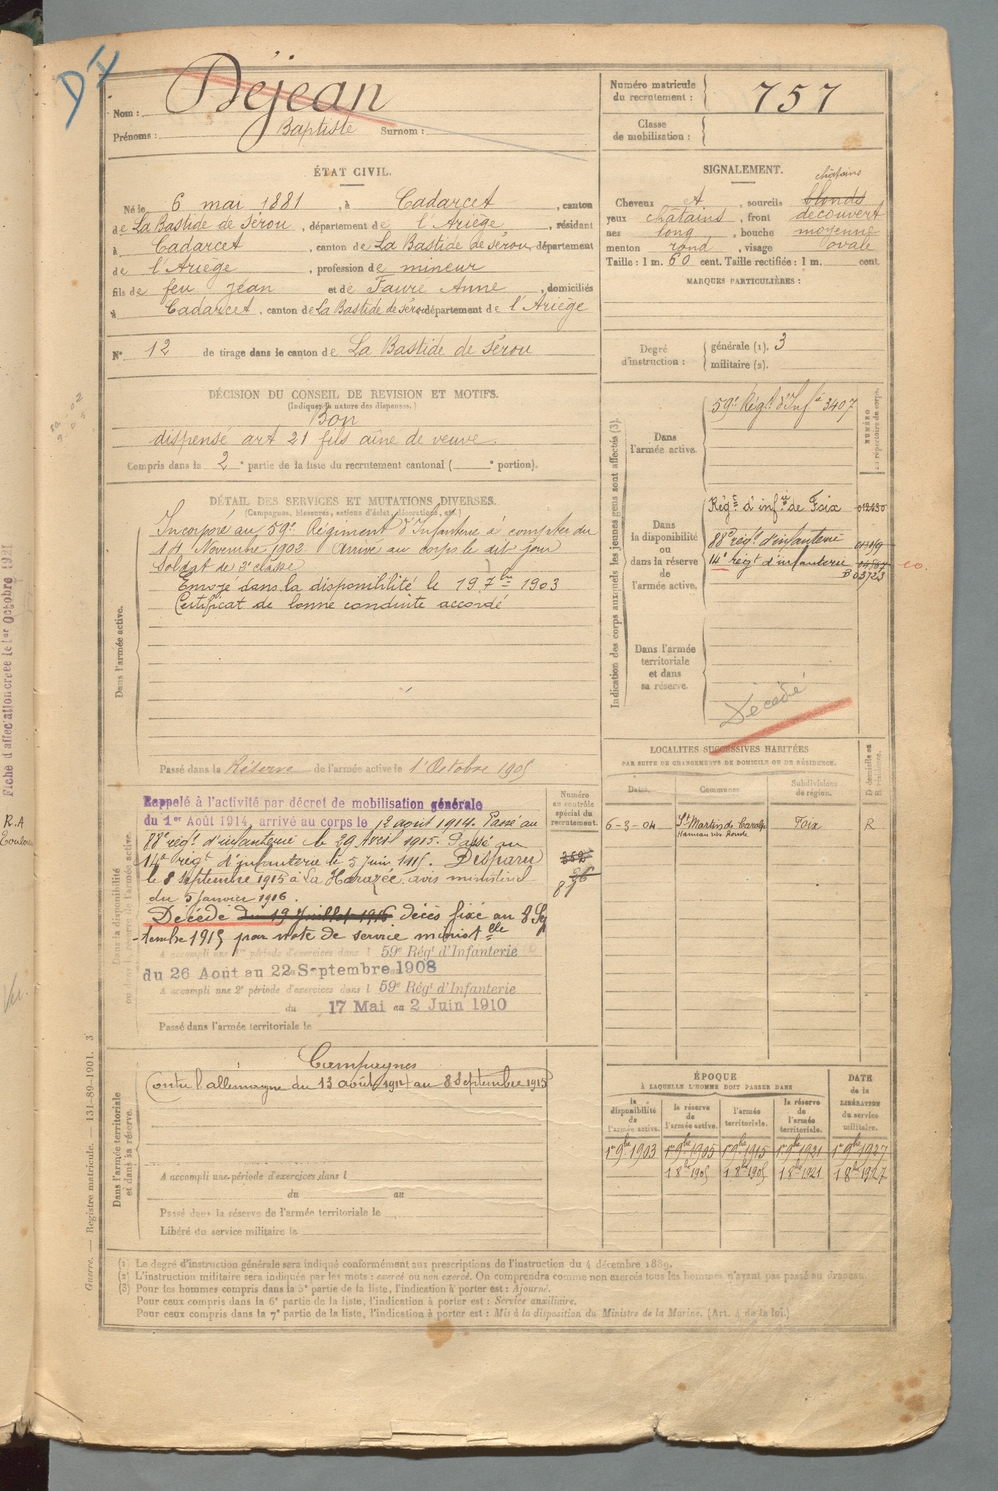 DI
Nom : Déjean
Prénoms : Baptiste Surnom :
Numéro matricule du recrutement : 757
Classe de mobilisation :
ÉTAT CIVIL.
Né le 6 mai 1881, à Cadarcet, canton
de La Bastide de Sérou, département de l'Ariège, résidant
à Cadarcet, canton de La Bastide de Sérou, département
de l'Ariège, profession de mineur
fils de feu Jean et de Faure Anne, domiciliés
à Cadarcet, canton de La Bastide de Sérou département de l'Ariège
N° 12 de tirage dans le canton de La Bastide de Sérou
SIGNALEMENT.
châtains
Cheveux A, sourcils blonds
yeux châtains, front découvert
nez long, bouche moyenne
menton rond, visage ovale
Taille : 1 m. 60 cent. Taille rectifiée : 1 m. cent.
MARQUES PARTICULIÈRES :
Degré d'instruction : générale (1). 3
militaire (2).
DÉCISION DU CONSEIL DE REVISION ET MOTIFS.
(Indiquer la nature des dispenses.)
Bon
dispensé art 21 fils aîné de veuve.
Compris dans la 2e partie de la liste du recrutement cantonal ( e portion).
DÉTAIL DES SERVICES ET MUTATIONS DIVERSES.
(Campagnes, blessures, actions d'éclat, décorations, etc.)
Dans l'armée active.
Incorporé au 59e Régiment d'Infanterie à compter du
14 Novembre 1902 Arrivé au corps le dit jour
Soldat de 2e classe
Envoyé dans la disponibilité le 19 7bre 1903
Certificat de bonne conduite accordé
Passé dans la Réserve de l'armée active le 1er Octobre 1905
Indication des corps auxquels les jeunes gens sont affectés (3).
NUMÉRO au répertoire du corps.
Dans l'armée active.
59e Régt d'Infie 3407
Dans la disponibilité ou dans la réserve de l'armée active.
Régt d'infie de Foix
88e régt d'infanterie
14e régt d'infanterie
B 03723
Dans l'armée territoriale et dans sa réserve.
Décédé
Dans la disponibilité ou dans la réserve de l'armée active.
Rappelé à l'activité par décret de mobilisation générale
du 1er Août 1914, arrivé au corps le 12 août 1914. Passé au
88e régt d'infanterie le 29 Avril 1915. Passé au
14e régt d'infanterie le 5 juin 1915. Disparu
le 8 septembre 1915 à La Harazée avis ministériel
du 5 janvier 1916.
Décédé du 19 Juillet 1916 décès fixé au 8 Sep
-tembre 1915 par note de service ministelle
A accompli une 1re période d'exercices dans l 59e Régt d'Infanterie
du 26 Août au 22 Septembre 1908
A accompli une 2e période d'exercices dans l 59e Régt d'Infanterie
du 17 Mai au 2 Juin 1910
Passé dans l'armée territoriale le
Numéro au contrôle spécial du recrutement.
LOCALITÉS SUCCESSIVES HABITÉES
PAR SUITE DE CHANGEMENTS DE DOMICILE OU DE RÉSIDENCE.
Dates. Communes Subdivisions de région. D domicile ou R résidence.
6-3-04 St Martin de Caralp Foix R
Dans l'armée territoriale et dans sa réserve.
Campagnes
Contre l'allemagne du 13 août 1914 au 8 Septembre 1915
A accompli une période d'exercices dans l
du au
Passé dans la réserve de l'armée territoriale le
Libéré du service militaire le
ÉPOQUE
À LAQUELLE L'HOMME DOIT PASSER DANS
la disponibilité de l'armée active. la réserve de l'armée active. l'armée territoriale. la réserve de l'armée territoriale. DATE de la LIBÉRATION du service militaire.
1er 9bre 1903 1er 9bre 1905 1er 9bre 1915 1er 9bre 1921 1er 9bre 1927
1 8bre 1905 1 8bre 1921 1 8bre 1927
(1) Le degré d'instruction générale sera indiqué conformément aux prescriptions de l'instruction du 4 décembre 1889.
(2) L'instruction militaire sera indiquée par les mots : exercé ou non exercé. On comprendra comme non exercés tous les hommes n'ayant pas passé au drapeau.
(3) Pour les hommes compris dans la 5e partie de la liste, l'indication à porter est : Ajourné.
Pour ceux compris dans la 6e partie de la liste, l'indication à porter est : Service auxiliaire.
Pour ceux compris dans la 7e partie de la liste, l'indication à porter est : Mis à la disposition du Ministre de la Marine. (Art. 4 de la loi.)
Guerre. — Registre matricule. — 131-89-1901. 3
Fiche d'affectation créée le 1er Octobre 1921
R.A